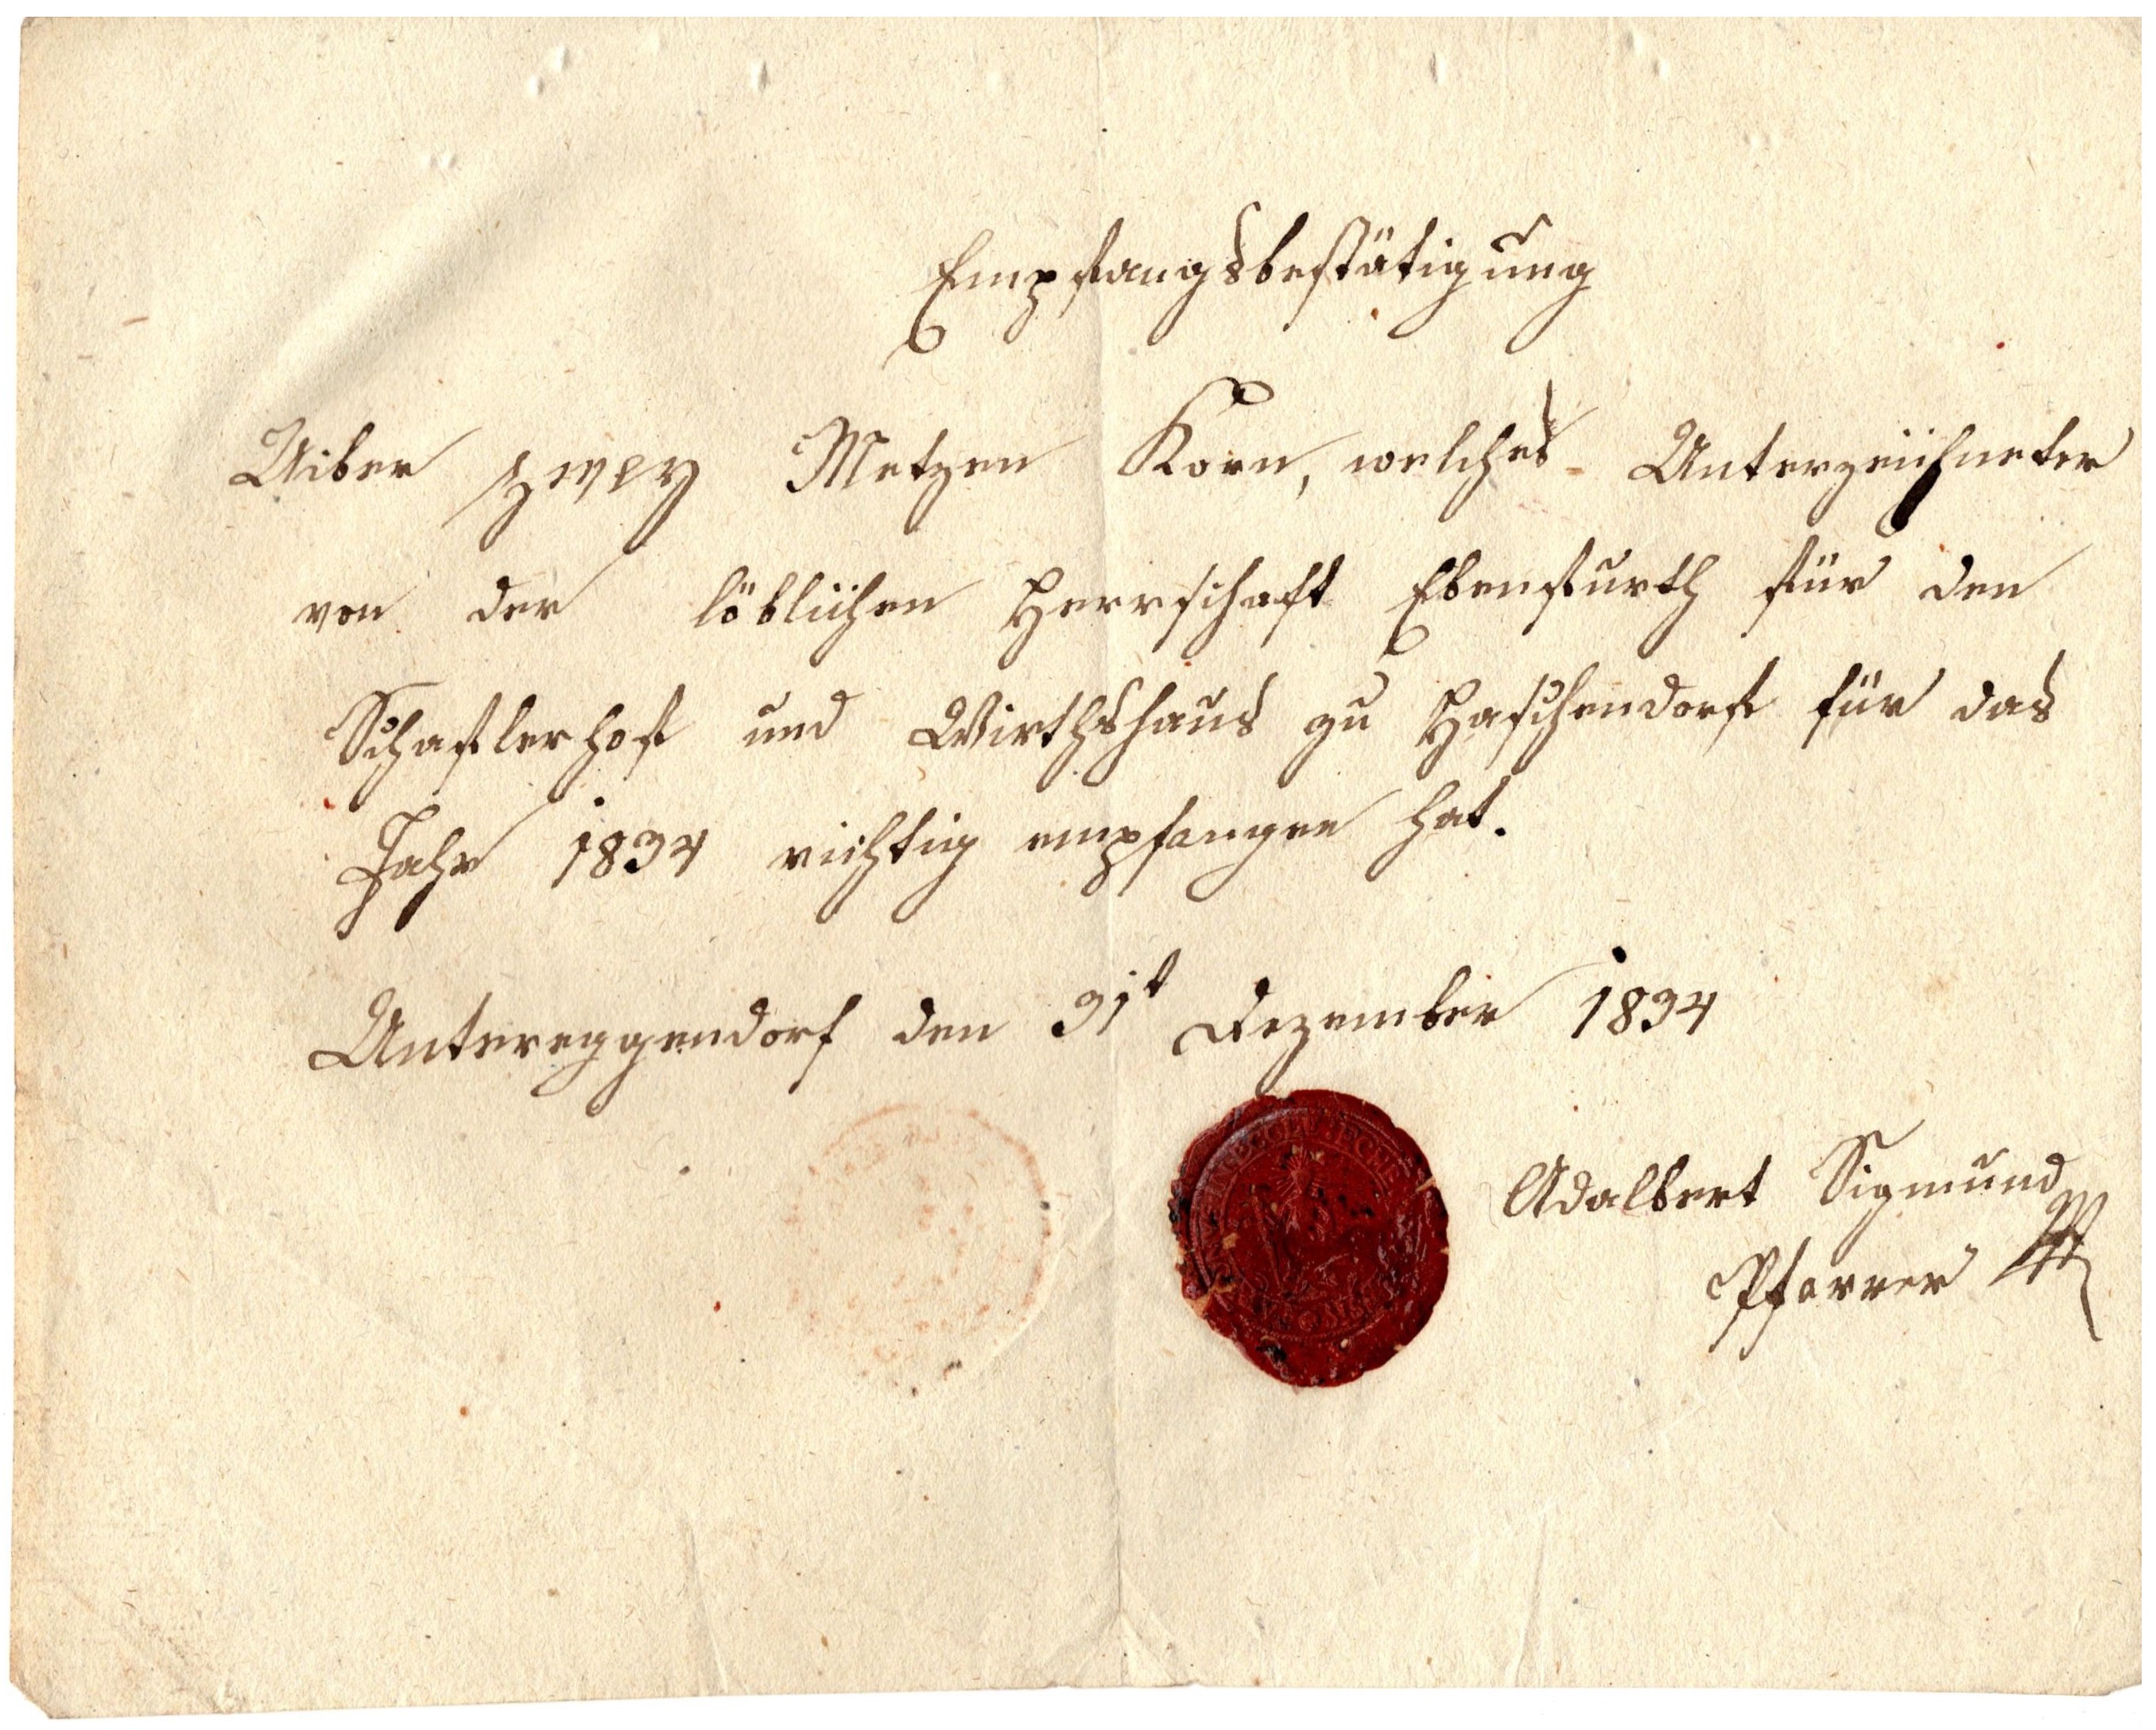 Empfangsbestätigung
Uiber zwey Metzen Korn, welches Unterzeichneter
von der löblichen Herrschaft Ebenfurth für den
Schaflerhof und Wirthshaus zu Haschendorf für das
Jahr 1834 richtig empfangen hat.
Untereggendorf den 31t Dezember 1834
Adalbert Sigmund
Pfarrer